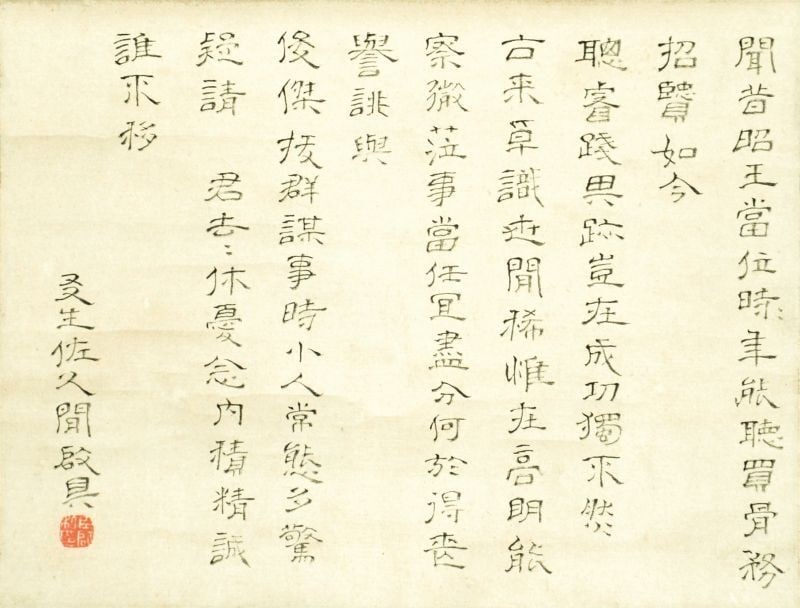 聞昔昭王當位時〻年能聽買骨務
招賢如今
聰睿踐異跡豈在成功獨不然
古来卓識世間稀惟在高明能
察微莅事當任宜盡分何於得喪
譽誹與
俊傑拔群謀事時小人常態多驚
疑請 君去〻休憂念内積精誠
誰不移
友生佐久間啟具